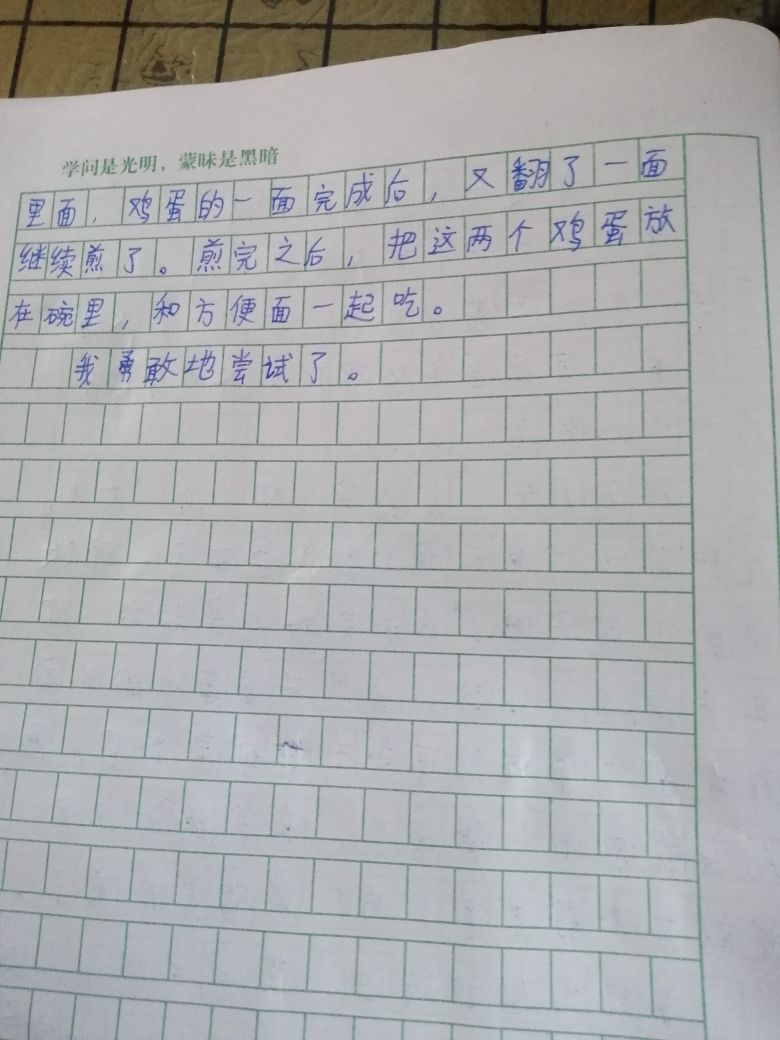 学问是光明，蒙昧是黑暗
里面，鸡蛋的一面完成后，又翻了一面
继续煎了。煎完之后，把这两个鸡蛋放
在碗里，和方便面一起吃。
我勇敢地尝试了。